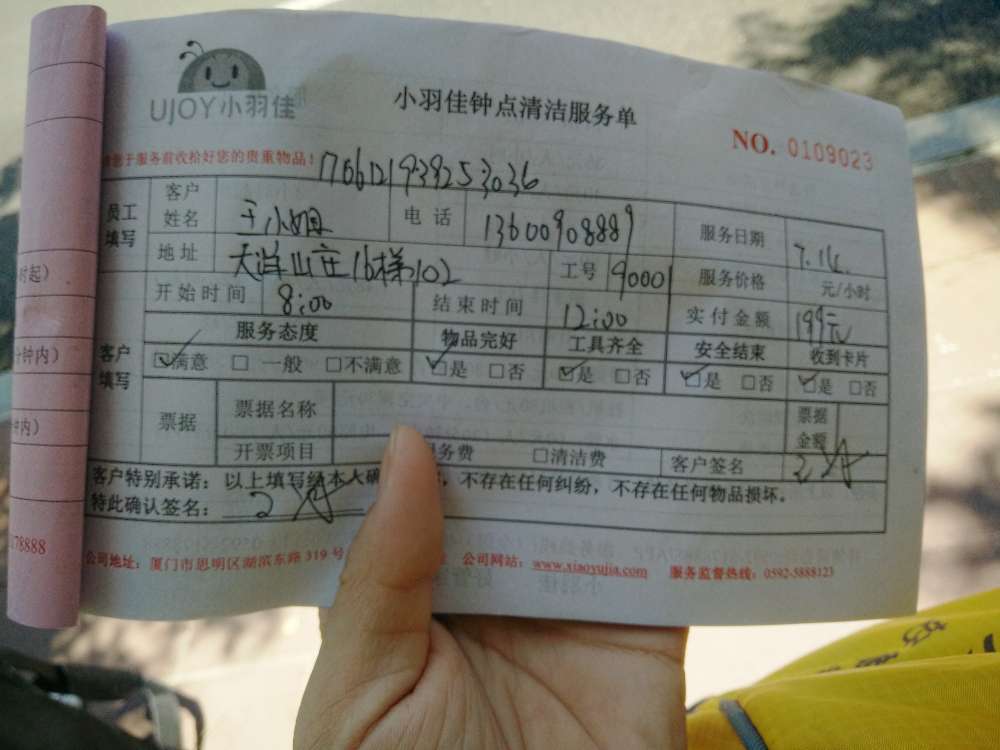 UJOY小羽佳
小羽佳钟点清洁服务单
NO. 0109023
于服务前收拾好您的贵重物品!
员工填写 客户姓名 王小姐 电话 13600908889 服务日期 7.14.
地址 大洋山庄16梯102 工号 90001 服务价格 元/小时
开始时间 8:00 结束时间 12:00 实付金额 199元
客户填写 服务态度 物品完好 工具齐全 安全结束 收到卡片
☑满意 □一般 □不满意 ☑是 □否 ☑是 □否 ☑是 □否 ☑是 □否
票据 票据名称 票据金额
开票项目 务费 □清洁费 客户签名
客户特别承诺: 以上填写经本人确 不存在任何纠纷,不存在任何物品损坏。
特此确认签名:
公司地址: 厦门市思明区湖滨东路 319 号 公司网站: www.xiaoyujia.com 服务监督热线: 0592-5888123
时起)
钟内)
内)
78888